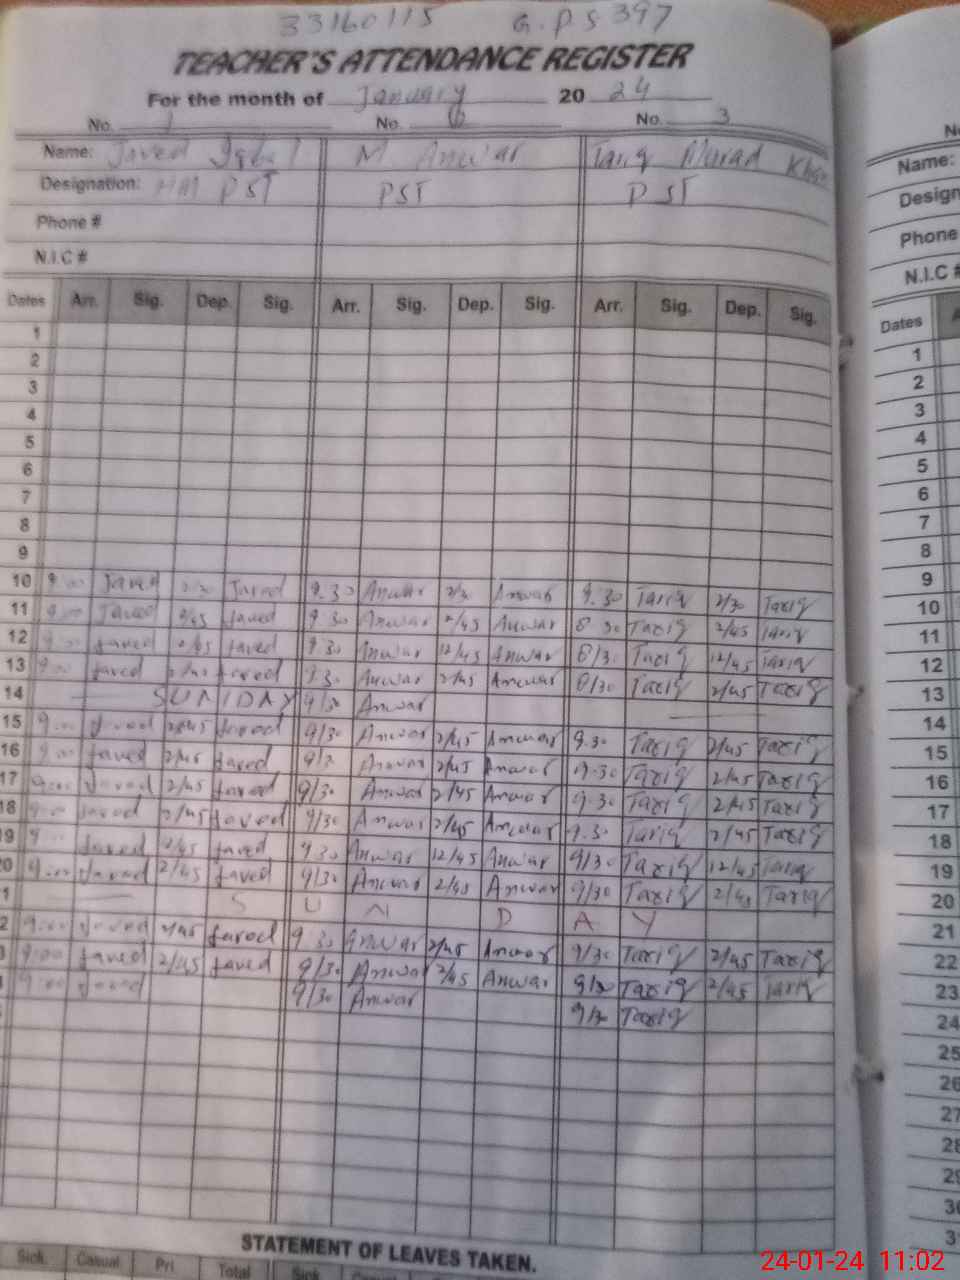 33160115 G.P.S 397
TEACHER'S ATTENDANCE REGISTER
For the month of January 20 24
No. 1 No. No. 3
Name: Javed Iqbal M. Anwar Tariq Murad Khan
Designation: HM PST PST PST
Phone #
N.I.C #
Dates Arr. Sig. Dep. Sig. Arr. Sig. Dep. Sig. Arr. Sig. Dep. Sig.
1
2
3
4
5
6
7
8
9
10 9.00 Javed 2.30 Javed 9.30 Anwar 2/30 Anwar 9.30 Tariq 2/30 Tariq
11 9.00 Javed 2/45 Javed 9.30 Anwar 2/45 Anwar 8.30 Tariq 2/45 Tariq
12 9.00 Javed 2/45 Javed 9.30 Anwar 12/45 Anwar 8/30 Tariq 12/45 Tariq
13 9.00 Javed 2/45 Javed 9.30 Anwar 2/45 Anwar 8/30 Tariq 2/45 Tariq
14 SUNDAY 9/30 Anwar
15 9.00 Javed 2/45 Javed 9/30 Anwar 2/45 Anwar 9.30 Tariq 2/45 Tariq
16 9.00 Javed 2/45 Javed 9/3 Anwar 2/45 Anwar 9.30 Tariq 2/45 Tariq
17 9.00 Javed 2/45 Javed 9/30 Anwar 2/45 Anwar 9.30 Tariq 2/45 Tariq
18 9.00 Javed 2/45 Javed 9/30 Anwar 2/45 Anwar 9.30 Tariq 2/45 Tariq
19 9.00 Javed 12/45 Javed 9.30 Anwar 12/45 Anwar 9/30 Tariq 12/45 Tariq
20 9.00 Javed 2/45 Javed 9/30 Anwar 2/45 Anwar 9/30 Tariq 2/45 Tariq
1 S U N D A Y
2 9.00 Javed 2/45 Javed 9.30 Anwar 2/45 Anwar 9/30 Tariq 2/45 Tariq
9.00 Javed 2/45 Javed 9/30 Anwar 2/45 Anwar 9/30 Tariq 2/45 Tariq
9.00 Javed 9/30 Anwar 9/30 Tariq
STATEMENT OF LEAVES TAKEN.
Sick. Casual Pri Total Sick.
Name:
Phone
N.I.C #
Dates
1
2
3
4
5
6
7
8
9
10
11
12
13
14
15
16
17
18
19
20
21
22
23
24
25
26
27
28
29
30
24-01-24 11:02